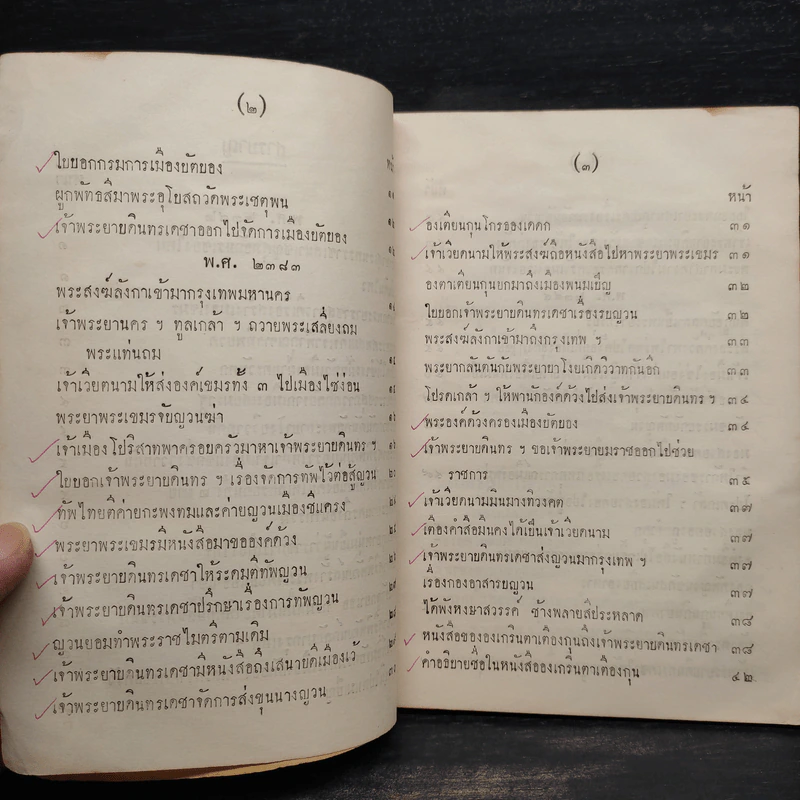 (๒)
ใบบอกกรมการเมืองบัตบอง
ผูกพัทธสีมาพระอุโบสถวัดพระเชตุพน
เจ้าพระยาบดินทรเดชาออกไปจัดการเมืองบัตบอง
พ.ศ. ๒๓๘๓
พระสงฆ์ลังกาเข้ามากรุงเทพมหานคร
เจ้าพระยานคร ฯ ทูลเกล้า ฯ ถวายพระเสลี่ยงถม
พระแท่นถม
เจ้าเวียดนามให้ส่งองค์เขมรทั้ง ๓ ไปเมืองไซ่ง่อน
พระยาพระเขมรจับญวนฆ่า
เจ้าเมืองโปริสาทพาครอบครัวมาหาเจ้าพระยาบดินทร ฯ
ใบบอกเจ้าพระยาบดินทร ฯ เรื่องจัดการทัพไว้ต่อสู้ญวน
ทัพไทยตีค่ายกะพงทมและค่ายญวนเมืองชีแครง
พระยาพระเขมรมีหนังสือมาขอองค์ด้วง
เจ้าพระยาบดินทรเดชาให้ระดมตีทัพญวน
เจ้าพระยาบดินทรเดชาปรึกษาเรื่องการทัพญวน
ญวนยอมทำพระราชไมตรีตามเดิม
เจ้าพระยาบดินทรเดชามีหนังสือถึงเสนาบดีเมืองเว้
เจ้าพระยาบดินทรเดชาจัดการส่งขุนนางญวน
(๓)
หน้า
องเตียนกุนโกรธองเดดก ๓๑
เจ้าเวียดนามให้พระสงฆ์ถือหนังสือไปหาพระยาพระเขมร ๓๑
องตาเตียนกุนยกมาถึงเมืองพนมเป็ญ ๓๒
ใบบอกเจ้าพระยาบดินทรเดชาเรื่องรบญวน ๓๒
พระสงฆ์ลังกาเข้ามาถึงกรุงเทพ ฯ ๓๓
พระยากลันตันกับพระยาบาโงยเกิดวิวาทกันอีก ๓๓
โปรดเกล้า ฯ ให้พานักองค์ด้วงไปส่งเจ้าพระยาบดินทร ฯ ๓๔
พระองค์ด้วงครองเมืองบัตบอง ๓๔
เจ้าพระยาบดินทร ฯ ขอเจ้าพระยายมราชออกไปช่วย
ราชการ ๓๕
เจ้าเวียดนามมินมางทิวงคต ๓๗
เตืองคำสือมินคงได้เป็นเจ้าเวียดนาม ๓๗
เจ้าพระยาบดินทรเดชาส่งญวนมากรุงเทพ ฯ ๓๗
เรื่องกองอาสารบญวน ๓๗
ได้พังหงษาสวรรค์ ช้างพลายสีประหลาด ๓๘
หนังสือขององเกรินตาเตืองกุนถึงเจ้าพระยาบดินทรเดชา ๓๘
คำอธิบายชื่อในหนังสือองเกรินตาเตืองกุน ๔๒